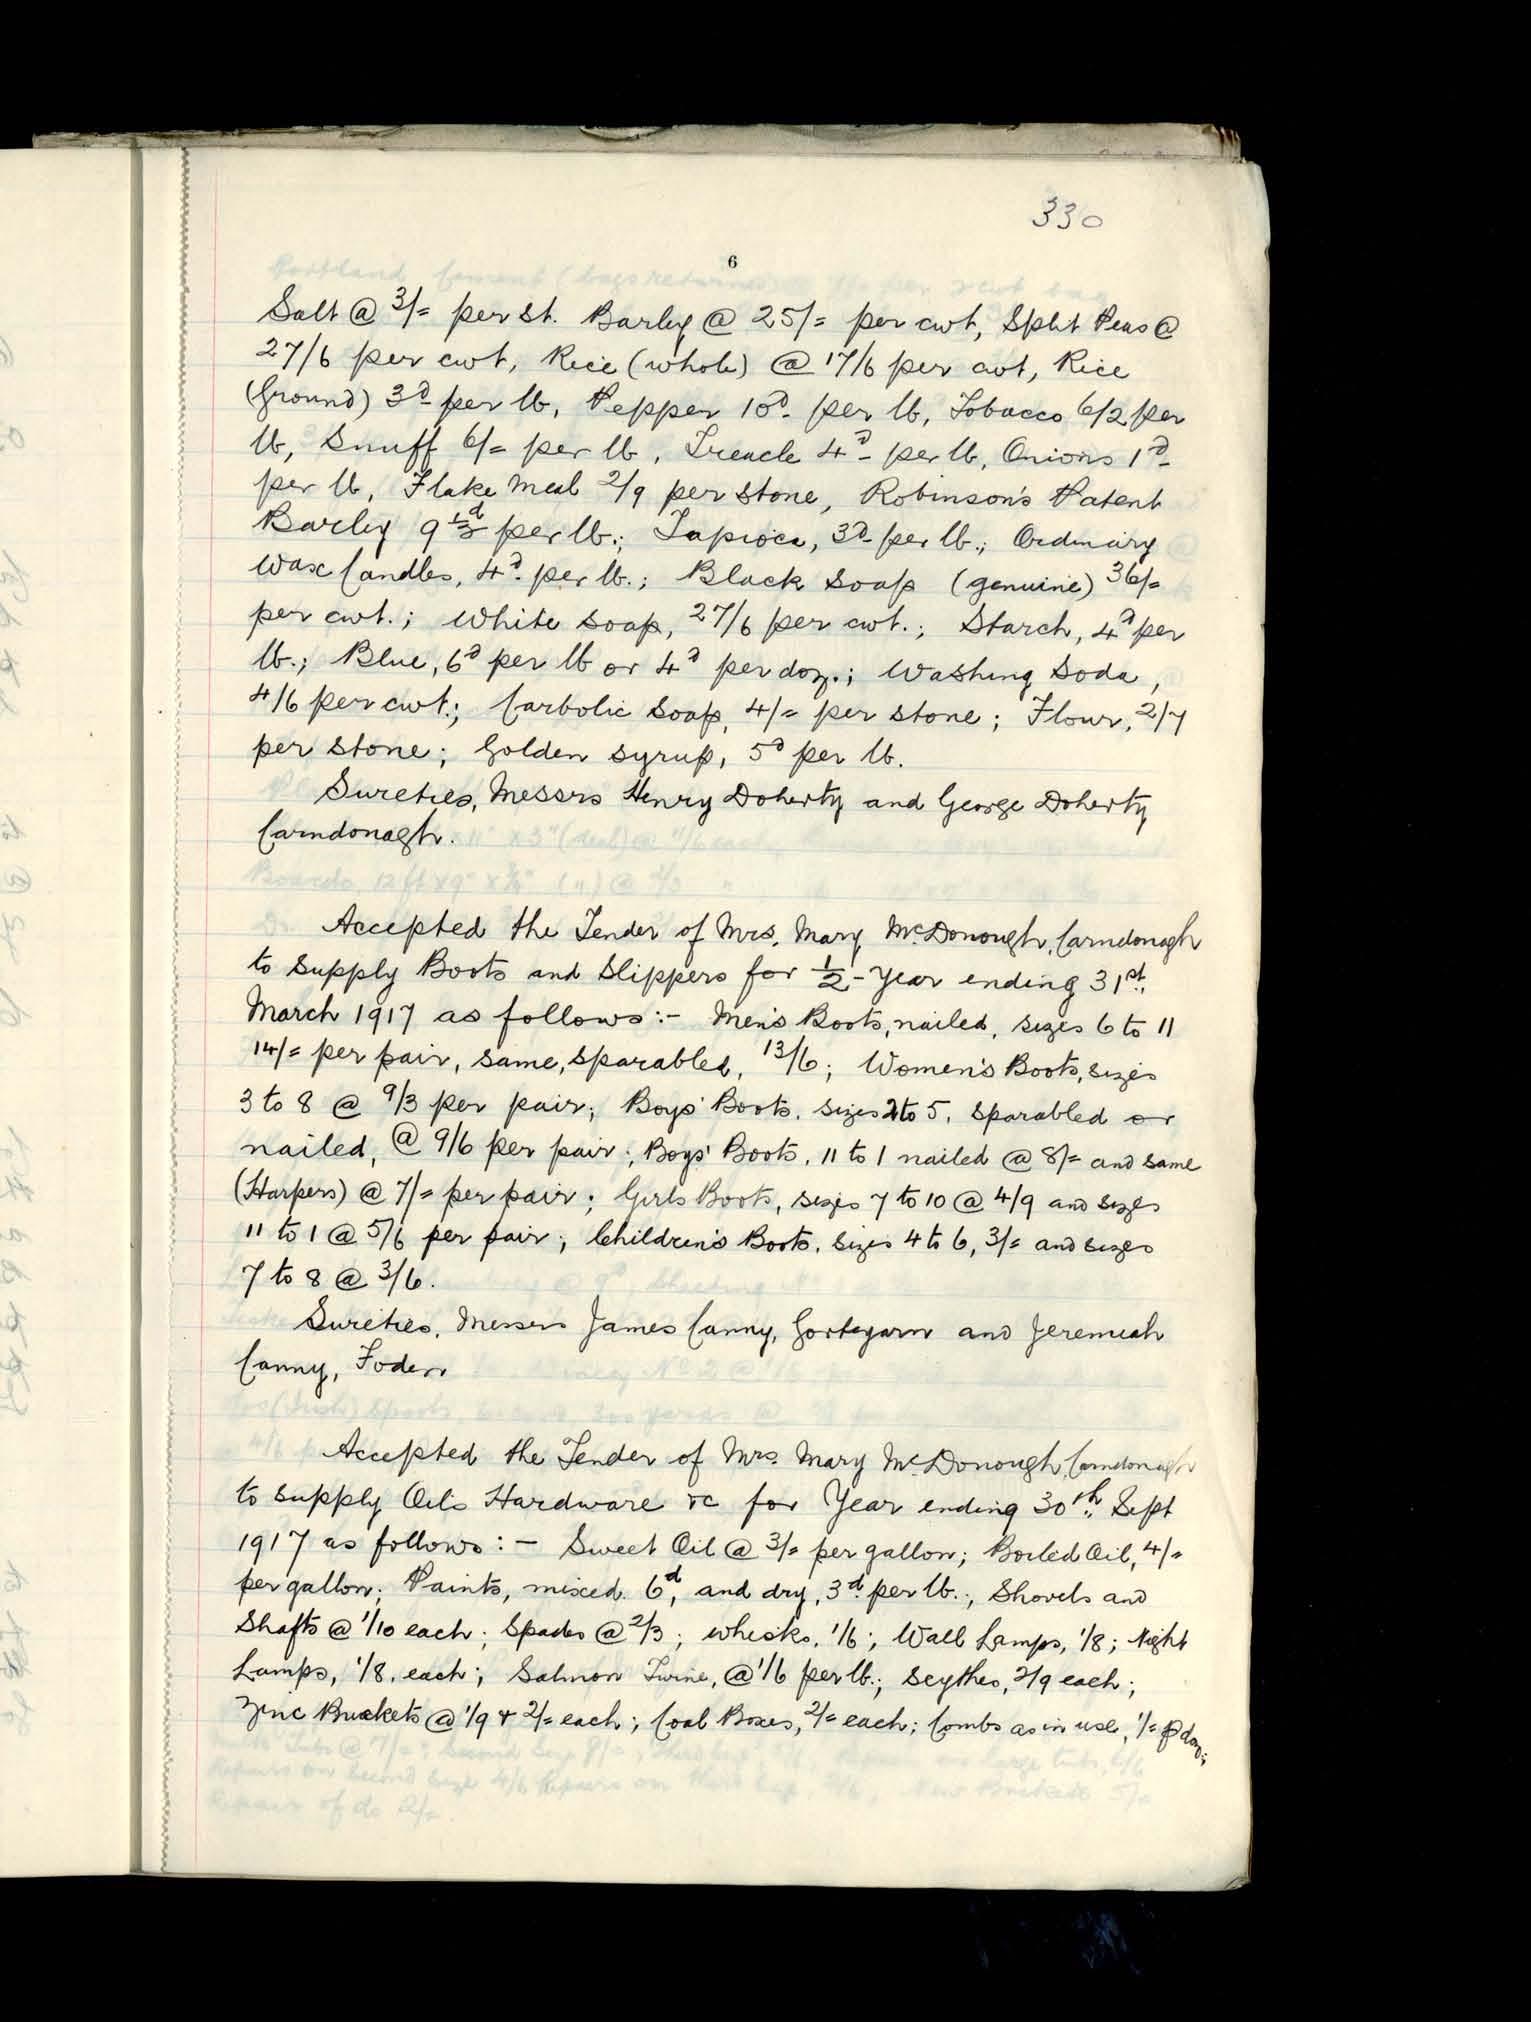 330
6
Salt @ 3/= per St. Barley @ 25/= per cwt, Split Peas @
27/6 per cwt, Rice (whole) @ 17/6 per cwt, Rice
(Ground) 3d per lb, Pepper 10d per lb, Tobacco 6/2 per
lb, Snuff 6/= per lb, Treacle 4d per lb, Onions 1d
per lb, Flake Meal 2/9 per stone, Robinson's Patent
Barley 9½d per lb.; Tapioca, 3d per lb.; Ordinary
Wax Candles, 4d per lb.; Black Soap (genuine) 36/=
per cwt.; White Soap, 27/6 per cwt.; Starch, 4d per
lb.; Blue, 6d per lb or 4d per doz.; Washing Soda,
4/6 per cwt.; Carbolic Soap, 4/= per stone; Flour, 2/7
per stone; Golden Syrup, 5d per lb.
Sureties, Messrs Henry Doherty and George Doherty
Carndonagh.
Accepted the Tender of Mrs. Mary McDonough, Carndonagh
to Supply Boots and Slippers for ½-Year ending 31st.
March 1917 as follows:- Men's Boots, nailed, sizes 6 to 11
14/= per pair, same, sparabled, 13/6; Women's Boots, sizes
3 to 8 @ 9/3 per pair; Boys' Boots, sizes 2 to 5, sparabled or
nailed, @ 9/6 per pair; Boys' Boots, 11 to 1 nailed @ 8/= and same
(Harpers) @ 7/= per pair; Girls Boots, sizes 7 to 10 @ 4/9 and sizes
11 to 1 @ 5/6 per pair; Children's Boots, sizes 4 to 6, 3/= and sizes
7 to 8 @ 3/6.
Sureties, Messrs James Canny, Gorteyarn and Jeremiah
Canny, Foden
Accepted the Tender of Mrs. Mary McDonough, Carndonagh
to supply Oils Hardware &c for Year ending 30th. Sept
1917 as follows:- Sweet Oil @ 3/= per gallon; Boiled Oil, 4/=
per gallon; Paints, mixed 6d, and dry, 3d. per lb.; Shovels and
Shafts @ 1/10 each; Spades @ 2/3; Whisks, 1/6; Wall Lamps, 1/8; Night
Lamps, 1/8, each; Salmon Twine, @ 1/6 per lb.; Scythes, 2/9 each;
Zinc Buckets @ 1/9 & 2/= each; Coal Boxes, 2/= each; Combs as in use, 1/= p doz;